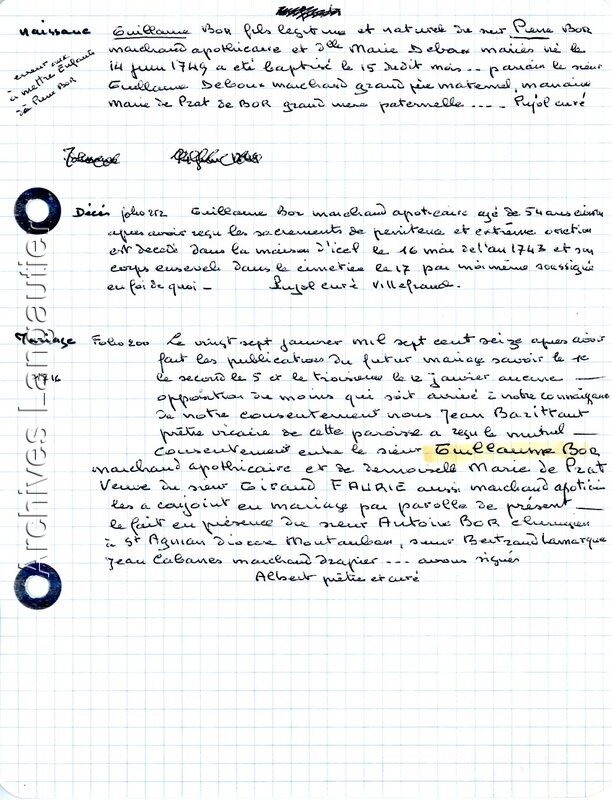 naissance Guillaume BOR fils legitime et naturel du sieur Pierre BOR
marchand apothicaire et dlle Marie Deboux mariés né le
14 juin 1749 a été baptisé le 15 dudit mois -- parrain le sieur
Guillaume Deboux marchand grand père maternel, marraine
Marie de Prat de BOR grand mere paternelle ---- Pujol curé
erreur
à mettre Enfants
à Pierre BOR
Décès folio 252 Guillaume Bor marchand apoticaire agé de 54 ans environ
apres avoir reçu les sacrements de penitence et extrême onction
est decedé dans la maison d'icel le 16 mai de l'an 1743 et son
corps enseveli dans le cimetiere le 17 par moi même soussigné
en foi de quoi - Pujol curé Villefranc.
Mariage Folio 200 Le vingt sept janvier mil sept cent seize apres avoir
1716 fait les publications du futur mariage savoir le
le second le 5 et le troisieme le 12 janvier aucune
opposition du moins qui soit arrivé à notre connaissance
de notre consentement nous Jean Bazittaut
prêtre vicaire de cette paroisse a reçu le mutuel
consentement entre le sieur Guillaume BOR
marchand apothicaire et de demoiselle Marie de Prat
Veuve du sieur Giraud FAURIE aussi marchand apoticaire
les a conjoint en mariage par parolle de présent
le fait en présence du sieur Antoine BOR chirurgien
à St Agnan diocèse Montauban, sieur Bertrand Lamarque
Jean Cabanes marchand drapier --- avons signés
Albert prêtre et curé
Archives Langautier